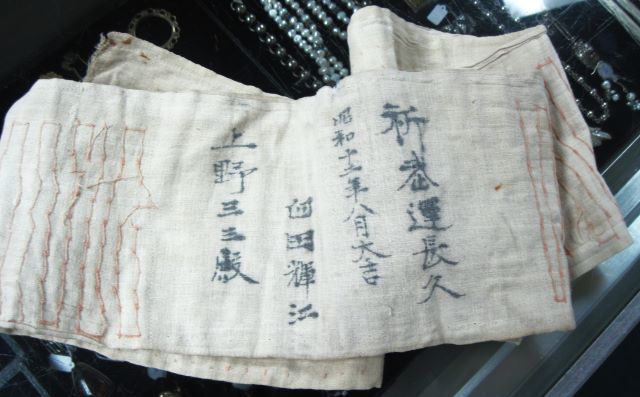 祈武運長久
昭和十二年八月大吉
田輝江
上野三三殿